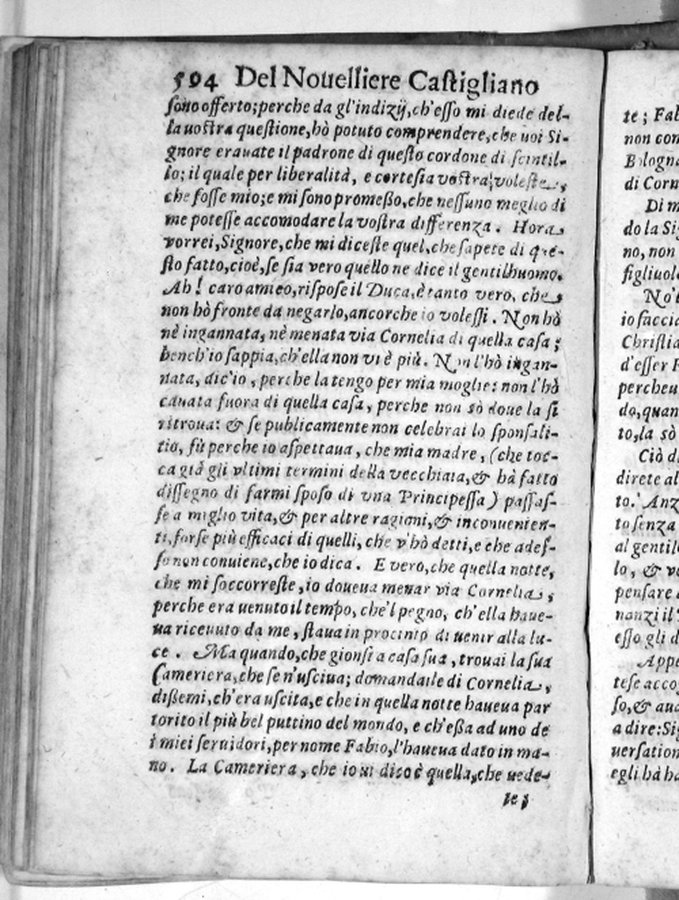 594 Del Nouelliere Castigliano
sono offerto; perche da gl'indizij, ch'esso mi diede del-
la uostra questione, hò potuto comprendere, che uoi Si-
gnore erauate il padrone di questo cordone di scintil-
lo; il quale per liberalità, e cortesia vostra, voleste,
che fosse mio; e mi sono promeßo, che nessuno meglio di
me potesse accomodare la vostra differenza. Hora
vorrei, Signore, che mi diceste quel, che sapete di que-
sto fatto, cioè, se sia vero quello ne dice il gentilhuomo.
Ah! caro amico, rispose il Duca, è tanto vero, che
non hò fronte da negarlo, ancorche io volessi. Non hò
nè ingannata, nè menata via Cornelia di quella casa;
bench'io sappia, ch'ella non vi è più. Non l'hò ingan-
nata, dic'io, perche la tengo per mia moglie: non l'hò
cauata fuora di quella casa, perche non sò doue la si
ritroua: & se publicamente non celebrai lo sponsali-
tio, fù perche io aspettaua, che mia madre, (che toc-
ca già gli vltimi termini della vecchiaia, & hà fatto
dissegno di farmi sposo di vna Principessa) passas-
se a miglio vita, & per altre ragioni, & inconuenien-
ti, forse più efficaci di quelli, che v'hò detti, e che ades-
so non conuiene, che io dica. E vero, che quella notte,
che mi soccorreste, io doueua menar via Cornelia,
perche era uenuto il tempo, che'l pegno, ch'ella haue-
ua riceuuto da me, staua in procinto di uenir alla lu-
ce. Ma quando, che gionsi a casa sua, trouai la sua
Cameriera, che se n'usciua; domandaile di Cornelia,
dißemi, ch'era uscita, e che in quella notte haueua par
torito il più bel puttino del mondo, e ch'eßa ad uno de
i miei seruidori, per nome Fabio, l'haueua dato in ma-
no. La Cameriera, che io ui dico è quella, che uede-
te;
te; Fab
non com
Bologna
di Corn
Di m
do la Sig
no, non
figliuol
No'l
io faccia
Christia
d'esser F
percheu
do, quan
to, la sò
Ciò d
direte al
to. Anz
to senza
al gentil
lo, & ve
pensare
nanzi il
esso gli d
Appe
tese acco
so, & aua
a dire: Sig
uersation
egli hà ha